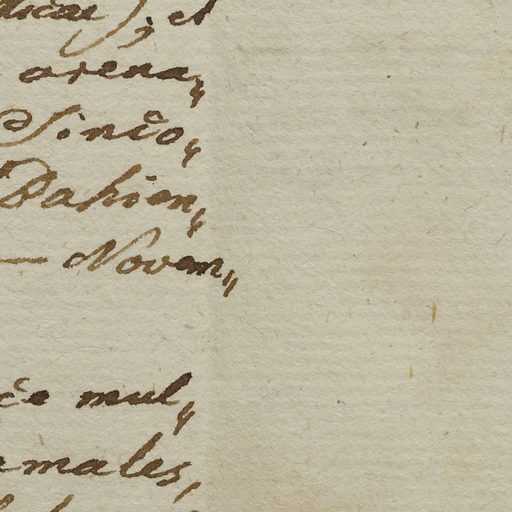 dicae); et
arena„
Sinico„
Pahien„
— Novem„
mul„
males,